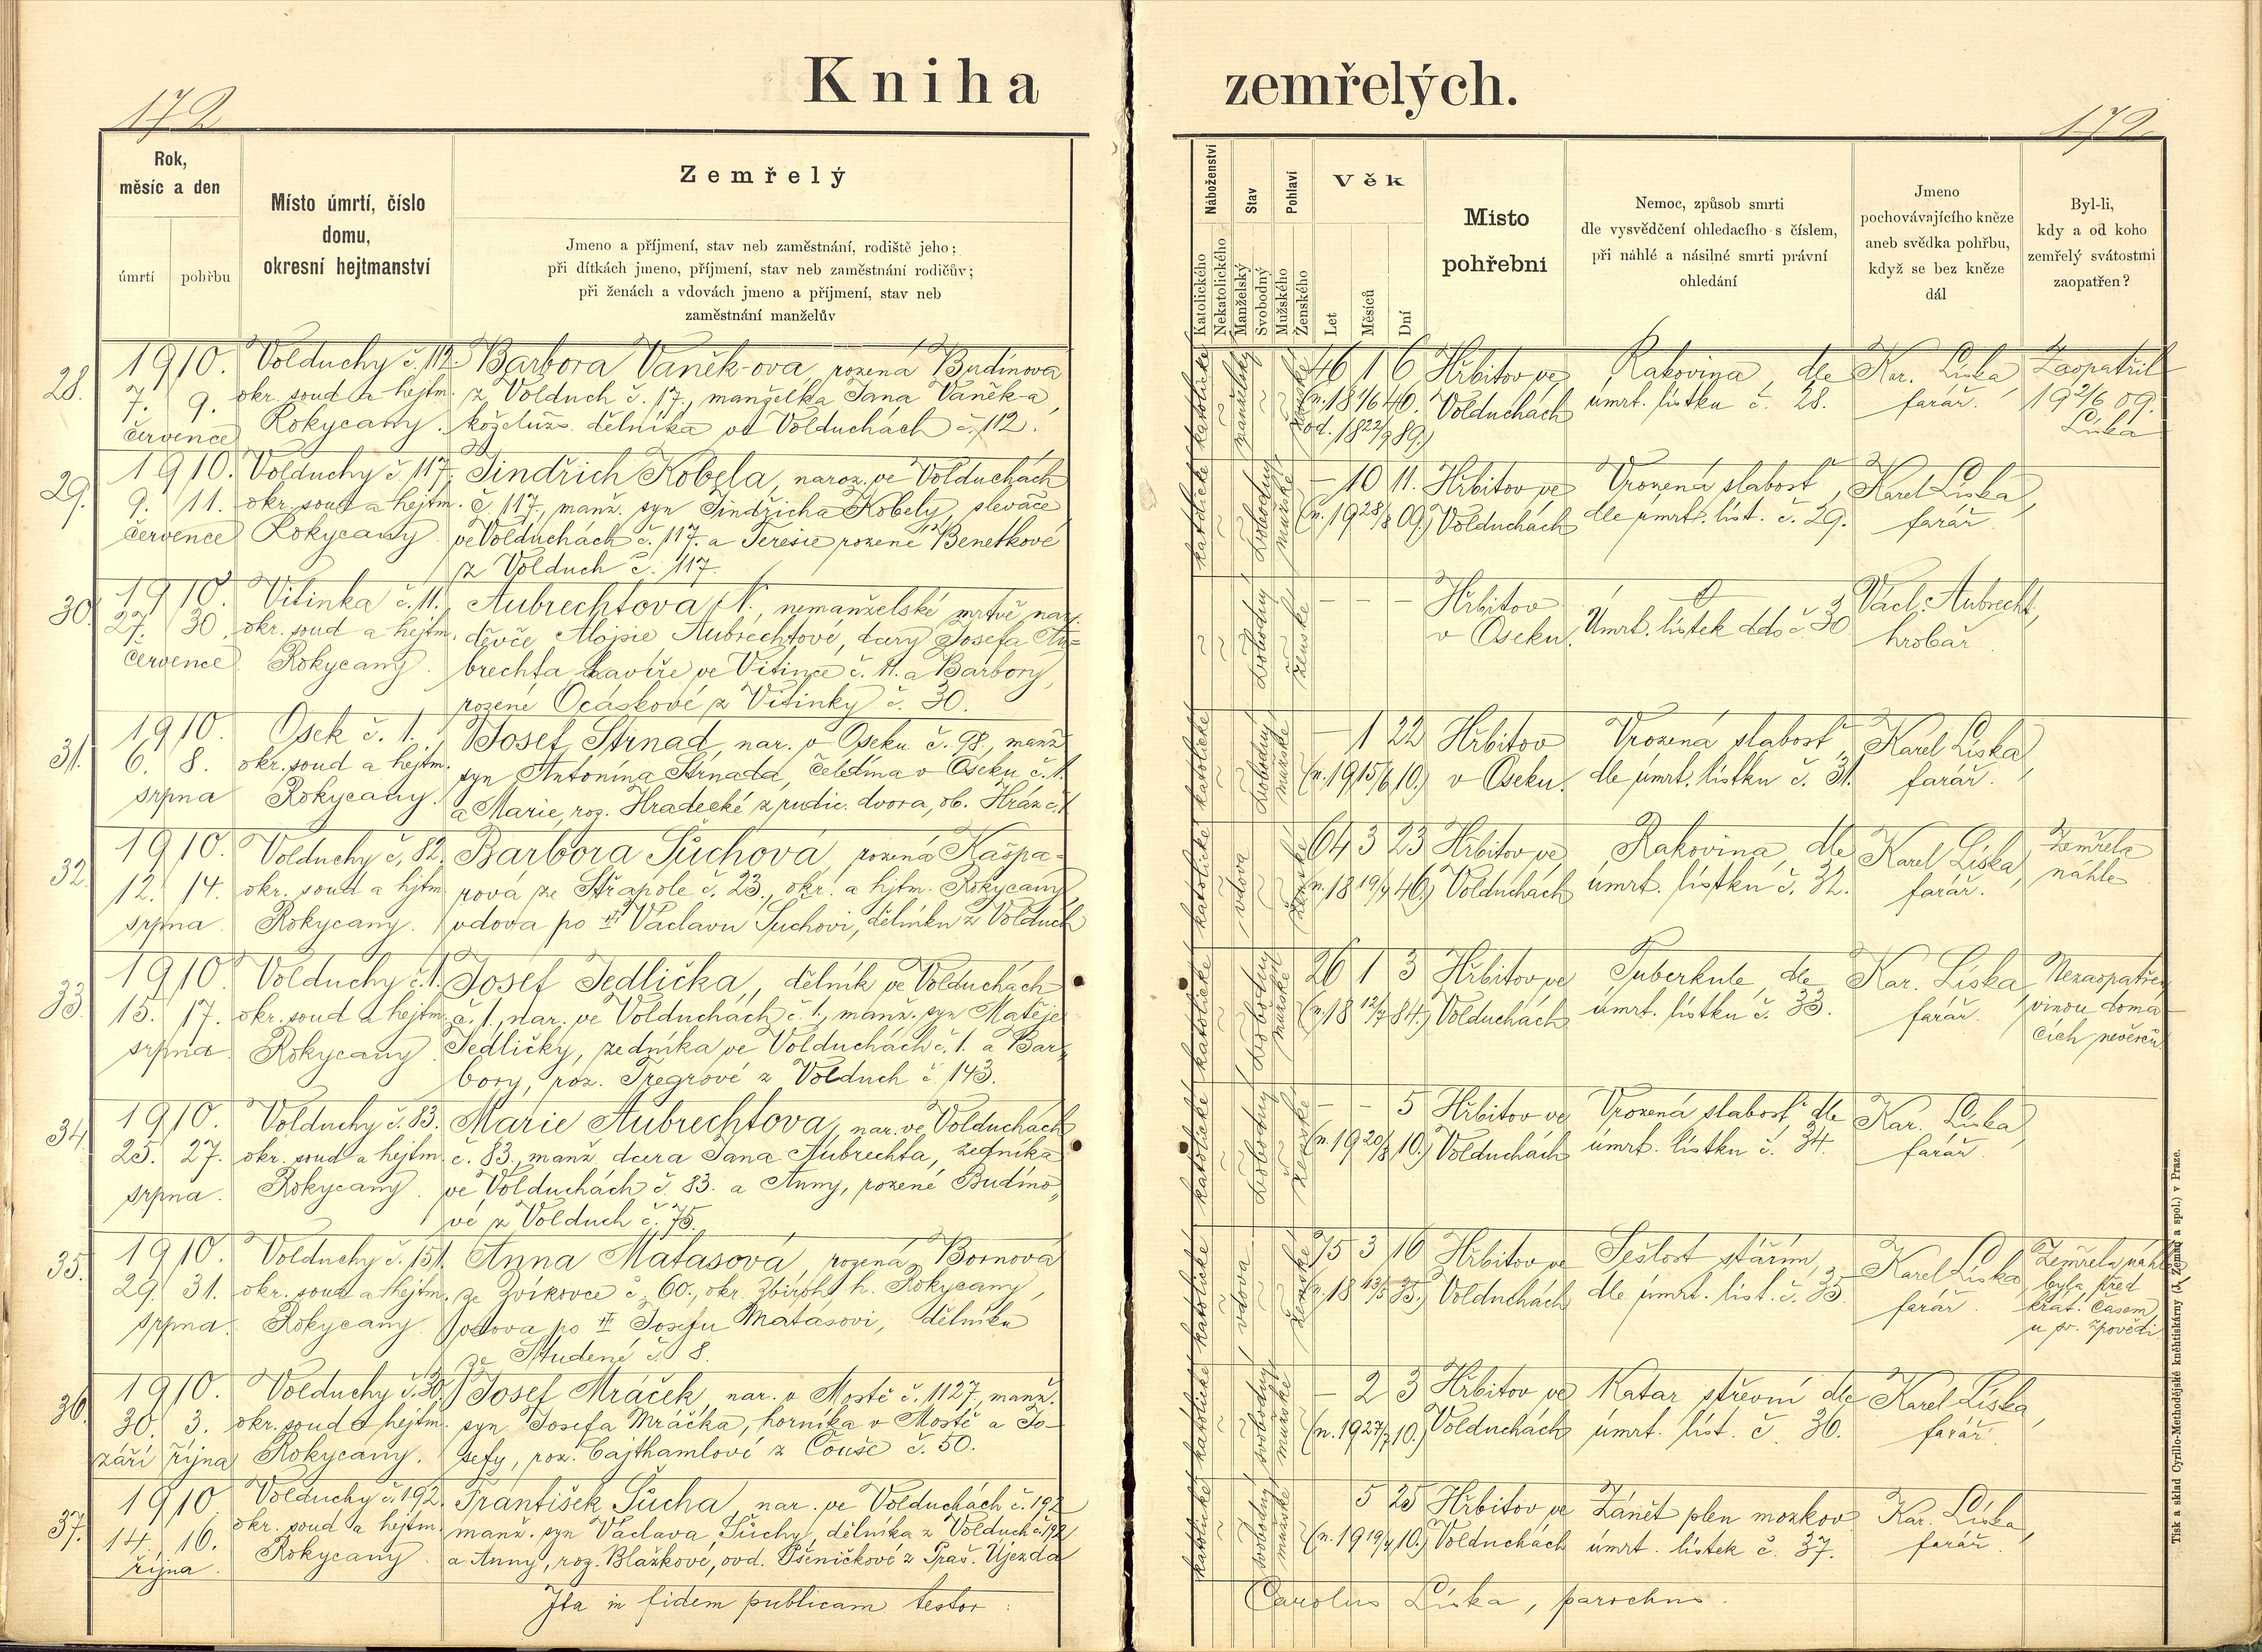 Kniha zemřelých.
172
172
Rok,
měsíc a den
úmrtí
pohřbu
Místo úmrtí, číslo
domu,
okresní hejtmanství
Zemřelý
Jmeno a příjmení, stav neb zaměstnání, rodiště jeho;
při dítkách jmeno, příjmení, stav neb zaměstnání rodičův;
při ženách a vdovách jmeno a příjmení, stav neb
zaměstnání manželův
Náboženství
Katolického
Nekatolického
Stav
Manželský
Svobodný
Pohlaví
Mužského
Ženského
Věk
Let
Měsíců
Dní
Místo
pohřební
Nemoc, způsob smrti
dle vysvědčení ohledacího s číslem,
při náhlé a násilné smrti právní
ohledání
Jmeno
pochovávajícího kněze
aneb svědka pohřbu,
když se bez kněze
dál
Byl-li,
kdy a od koho
zemřelý svátostmi
zaopatřen?
28.
1910.
7. 9.
července
Volduchy č. 112.
okr. soud a hejtm.
Rokycany.
Barbora Vaněk-ova, rozená Budínova
z Volduch č. 17., manželka Jana Vaněk-a,
koželuž. dělníka ve Volduchách č. 112.
katolické
manželský
ženské
46 1 6
(n. 18 1/6 40.
od. 18 22/9 89.)
Hřbitov ve
Volduchách
Rakovina, dle
úmrt. lístku č. 28.
Kar. Líska,
farář.
Zaopatřil
19 2/6 09.
Líska
29.
1910.
9. 11.
července
Volduchy č. 117.
okr. soud a hejtm.
Rokycany.
Jindřich Kobela, naroz. ve Volduchách
č. 117., manž. syn Jindřicha Kobely, slevače
ve Volduchách č. 117. a Teresie rozené Benetkové
z Volduch č. 117.
katolické
svobodný
mužské
– 10 11.
(n. 19 28/8 09.)
Hřbitov ve
Volduchách
Vrozená slabost,
dle úmrt. líst. č. 29.
Karel Líska,
farář.
30.
1910.
27. 30.
července
Vitinka č. 11.
okr. soud a hejtm.
Rokycany.
Aubrechtova N., nemanželské mrtvě nar.
děvče Aloisie Aubrechtové, dcery Josefa Au=
brechta, havíře ve Vitince č. 11. a Barbory,
rozené Ocáskové z Vitinky č. 30.
svobodný
ženské
– – –
Hřbitov
v Oseku.
Úmrt. lístek ddo č. 30
Václ. Aubrecht,
hrobař.
31.
1910.
6. 8.
srpna
Osek č. 1.
okr. soud a hejtm.
Rokycany.
Josef Strnad, nar. v Oseku č. 98., manž.
syn Antonína Strnada, čeledína v Oseku č. 1.
a Marie, roz. Hradecké z rudic. dvora, ob. Hráz č. 1
katolické
svobodný
mužské
– 1 22
(n. 19 15/6 10.)
Hřbitov
v Oseku.
Vrozená slabost,
dle úmrt. lístku č. 31.
Karel Líska,
farář.
32.
1910.
12. 14.
srpna.
Volduchy č. 82.
okr. soud a hjtm.
Rokycany.
Barbora Šůchová, rozená Kašpa-
rová ze Střapole č. 23., okr. a hjtm. Rokycany,
vdova po † Václavu Šuchovi, dělníku z Volduch
katolické
vdova
ženské
64 3 23
(n. 18 19/4 46.)
Hřbitov ve
Volduchách
Rakovina, dle
úmrt. lístku č. 32.
Karel Líska,
farář.
Zemřela
náhle
33.
1910.
15. 17.
srpna.
Volduchy č. 1.
okr. soud a hejtm.
Rokycany.
Josef Jedlička, dělník ve Volduchách
č. 1., nar. ve Volduchách č. 1., manž. syn Matěje
Jedličky, zedníka ve Volduchách č. 1. a Bar-
bory, roz. Tregrové z Volduch č. 143.
katolické
svobodný
mužské
26 1 3
(n. 18 12/7 84.)
Hřbitov ve
Volduchách
Tuberkule, dle
úmrt. lístku č. 33.
Kar. Líska,
farář.
Nezaopatřen
vinou domá
cích nevěrců
34.
1910.
25. 27.
srpna.
Volduchy č. 83.
okr. soud a hejtm.
Rokycany.
Marie Aubrechtova, nar. ve Volduchách
č. 83., manž. dcera Jana Aubrechta, zedníka
ve Volduchách č. 83. a Anny, rozené Budíno-
vé z Volduch č. 75.
katolické
svobodný
ženské
– – 5
(n. 19 20/8 10.)
Hřbitov ve
Volduchách
Vrozená slabost, dle
úmrt. lístku č. 34.
Kar. Líska,
farář.
35.
1910.
29. 31.
srpna.
Volduchy č. 151.
okr. soud a hejtm.
Rokycany.
Anna Matasová, rozená Bornova
ze Zvíkovce č. 60., okr. Zbiroh, h. Rokycany,
vdova po † Josefu Matasovi, dělníku
ze Studené č. 8.
katolické
vdova
ženské
75 3 16
(n. 18 13/5 35.)
Hřbitov ve
Volduchách
Sešlost stářím,
dle úmrt. líst. č. 35
Karel Líska,
farář.
Zemřela náhle
byla před
krát. časem
u sv. zpovědi.
36.
1910.
30. 3.
září října
Volduchy č. 30.
okr. soud a hejtm.
Rokycany.
Josef Mráček, nar. v Mostě č. 1127, manž.
syn Josefa Mráčka, horníka v Mostě a Jo-
sefy, roz. Cajthamlové z Čouše č. 50.
katolické
svobodný
mužské
– 2 3
(n. 19 27/7 10.)
Hřbitov ve
Volduchách
Katar střevní dle
úmrt. líst. č. 36.
Karel Líska,
farář.
37.
1910
14. 16.
října.
Volduchy č. 192.
okr. soud a hejtm.
Rokycany.
František Šůcha, nar. ve Volduchách č. 192
manž. syn Václava Šůchy, dělníka z Volduch č. 192
a Anny, roz. Blažkové, ovd. Pšeničkové z Praš. Újezda
katolické
svobodný
mužské
5 25
(n. 19 19/4 10.)
Hřbitov ve
Volduchách
Zánět plen mozkov.
úmrt. lístek č. 37.
Kar. Líska,
farář.
Ita in fidem publicam testor:
Carolus Líska, parochus.
Tisk a sklad Cyrillo-Methodějské knihtiskárny (J. Zeman a spol.) v Praze.